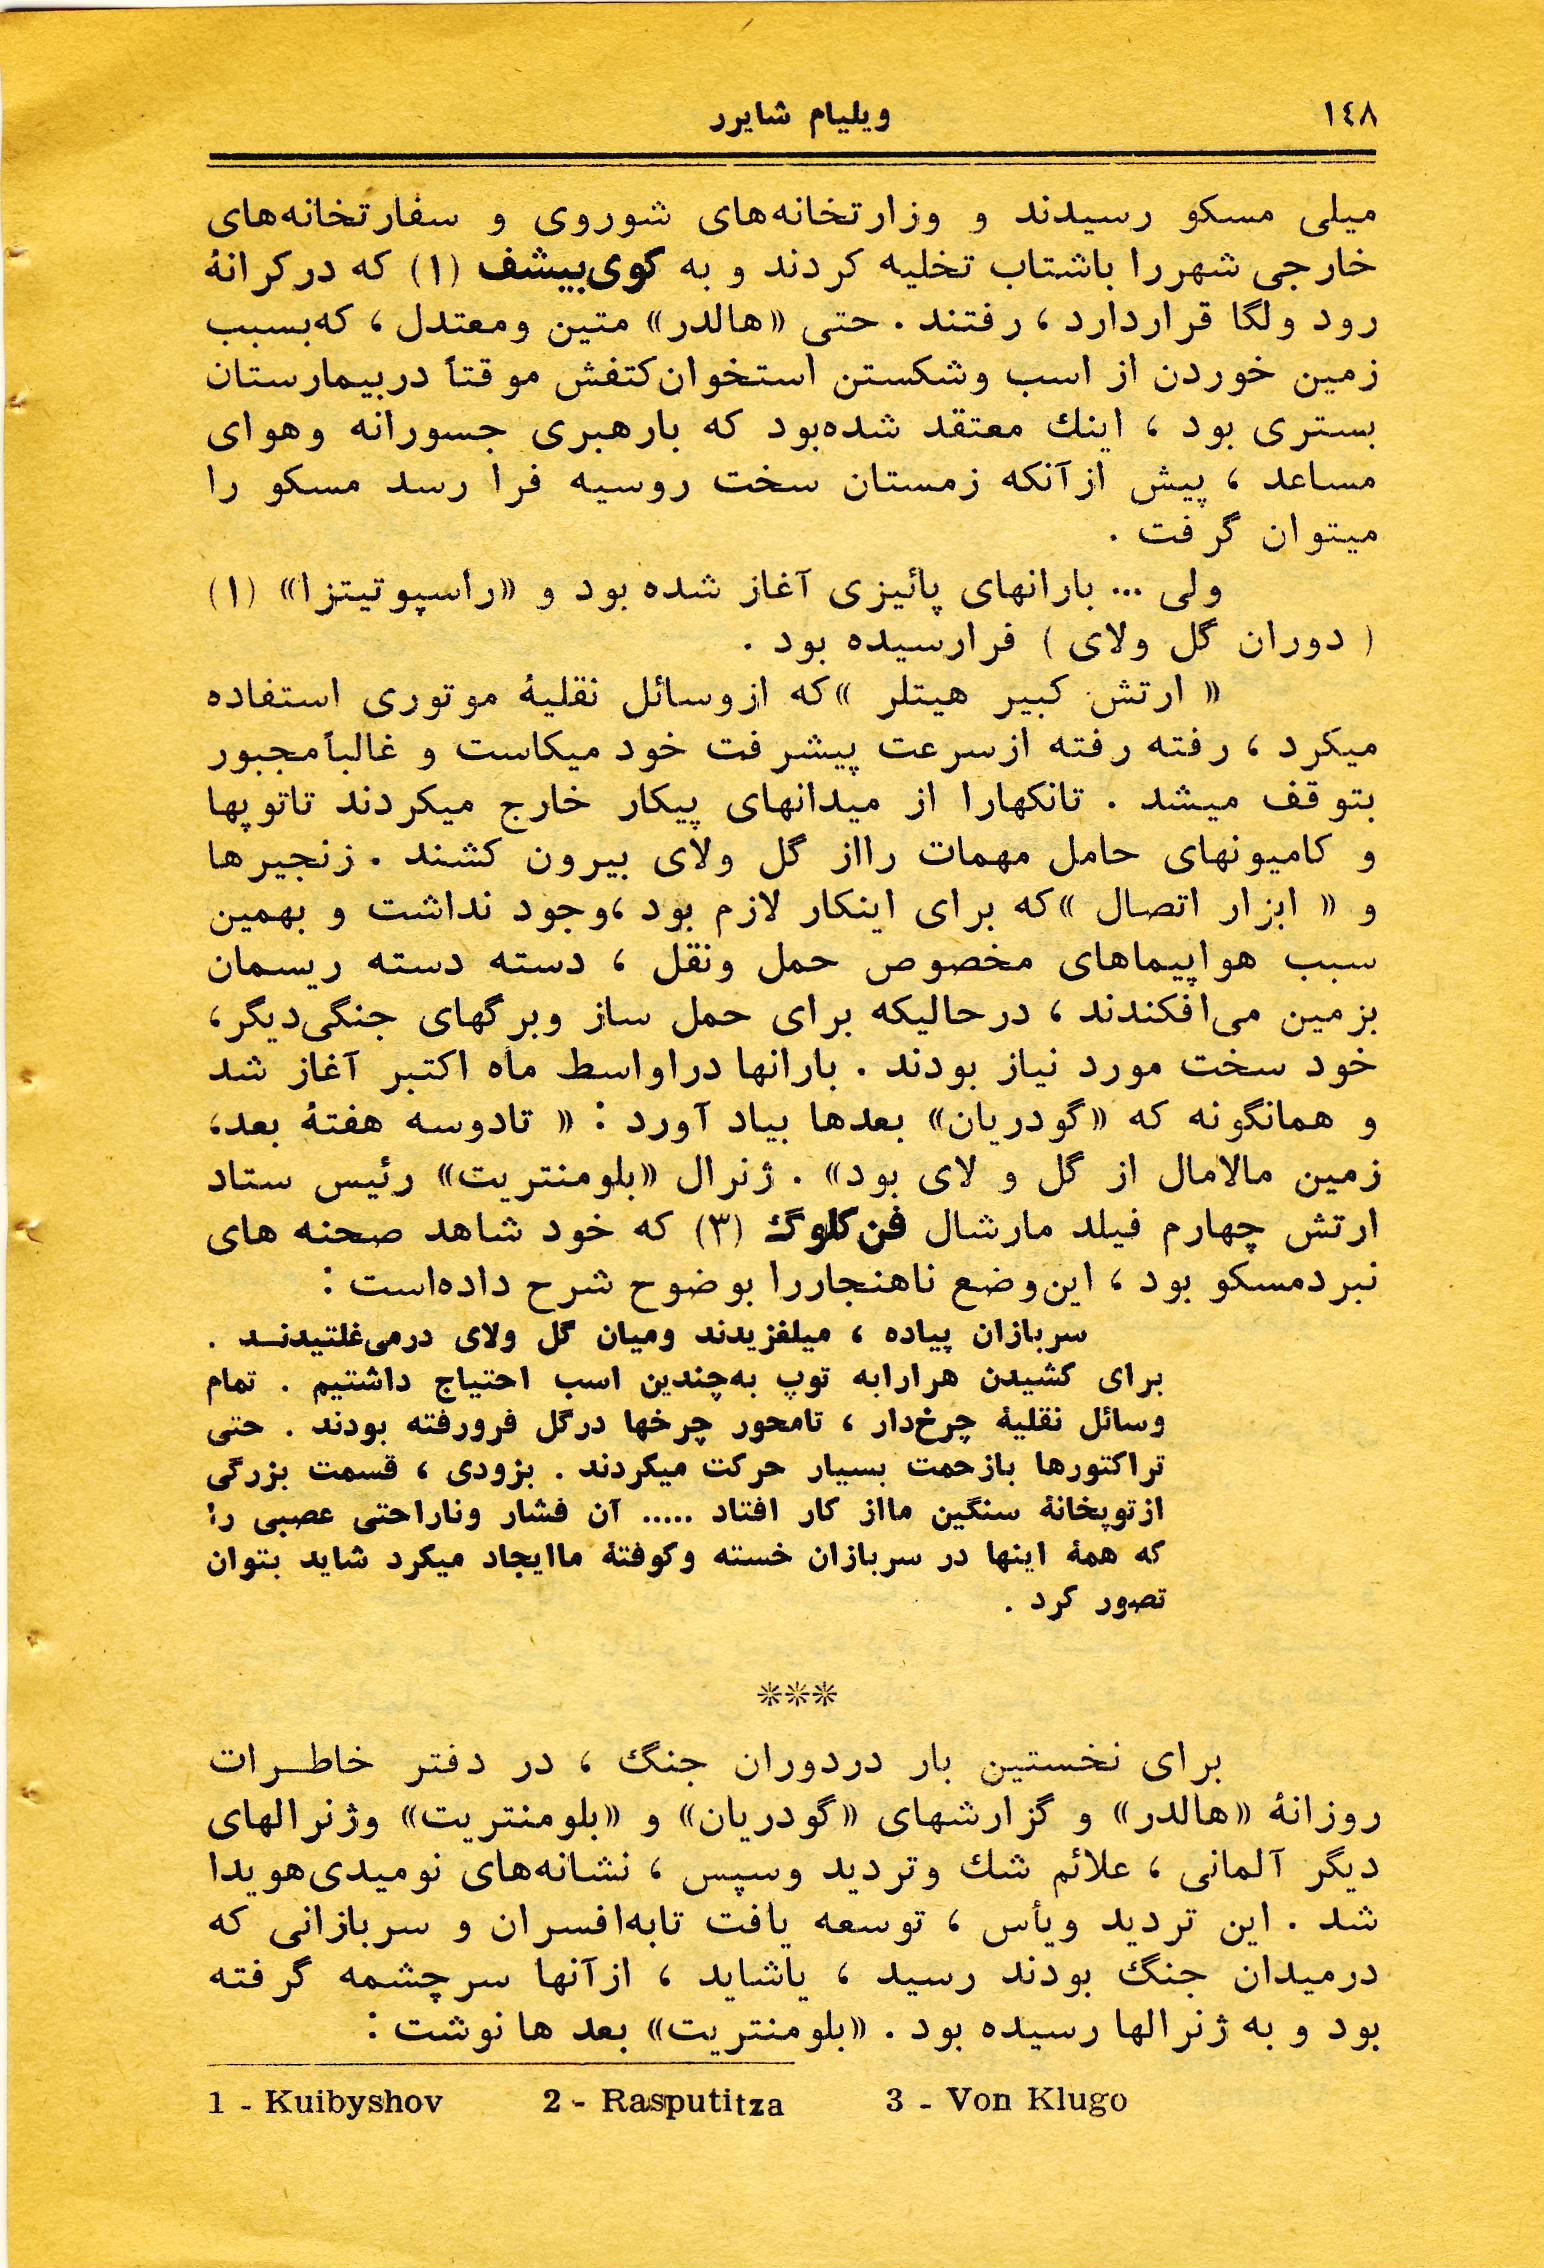 ۱٤۸
ویلیام شایرر
میلی مسکو رسیدند و وزارتخانه‌های شوروی و سفارتخانه‌های
خارجی شهررا باشتاب تخلیه کردند و به کوی‌بیشف (۱) که درکرانهٔ
رود ولگا قراردارد ، رفتند . حتی «هالدر» متین ومعتدل ، که‌بسبب
زمین خوردن از اسب وشکستن استخوان‌کتفش موقتاً دربیمارستان
بستری بود ، اینك معتقد شده‌بود که بارهبری جسورانه وهوای
مساعد ، پیش ازآنکه زمستان سخت روسیه فرا رسد مسکو را
میتوان گرفت .
ولی ... بارانهای پائیزی آغاز شده بود و «راسپوتیتزا» (۱)
( دوران گل ولای ) فرارسیده بود .
« ارتش کبیر هیتلر »که ازوسائل نقلیهٔ موتوری استفاده
میکرد ، رفته رفته ازسرعت پیشرفت خود میکاست و غالباًمجبور
بتوقف میشد . تانکهارا از میدانهای پیکار خارج میکردند تاتوپها
و کامیونهای حامل مهمات رااز گل ولای بیرون کشند . زنجیرها
و « ابزار اتصال »که برای اینکار لازم بود ،وجود نداشت و بهمین
سبب هواپیماهای مخصوص حمل ونقل ، دسته دسته ریسمان
بزمین می‌افکندند ، درحالیکه برای حمل ساز وبرگهای جنگی‌دیگر،
خود سخت مورد نیاز بودند . بارانها دراواسط ماه اکتبر آغاز شد
و همانگونه که «گودریان» بعدها بیاد آورد : « تادوسه هفتهٔ بعد،
زمین مالامال از گل و لای بود» . ژنرال «بلومنتریت» رئیس ستاد
ارتش چهارم فیلد مارشال فن‌کلوگ (۳) که خود شاهد صحنه های
نبردمسکو بود ، این‌وضع ناهنجاررا بوضوح شرح داده‌است :
سربازان پیاده ، میلفزیدند ومیان گل ولای درمی‌غلتیدنـد .
برای کشیدن هرارابه توپ به‌چندین اسب احتیاج داشتیم . تمام
وسائل نقلیهٔ چرخ‌دار ، تامحور چرخها درگل فرورفته بودند . حتی
تراکتورها بازحمت بسیار حرکت میکردند . بزودی ، قسمت بزرگی
ازتوپخانهٔ سنگین مااز کار افتاد ..... آن فشار وناراحتی عصبی را
که همهٔ اینها در سربازان خسته وکوفتهٔ ماایجاد میکرد شاید بتوان
تصور کرد .
***
برای نخستین بار دردوران جنگ ، در دفتر خاطـرات
روزانهٔ «هالدر» و گزارشهای «گودریان» و «بلومنتریت» وژنرالهای
دیگر آلمانی ، علائم شك وتردید وسپس ، نشانه‌های نومیدی‌هویدا
شد . این تردید ویأس ، توسعه یافت تابه‌افسران و سربازانی که
درمیدان جنگ بودند رسید ، یاشاید ، ازآنها سرچشمه گرفته
بود و به ژنرالها رسیده بود . «بلومنتریت» بعد ها نوشت :
1 - Kuibyshov 2 - Rasputitza 3 - Von Klugo